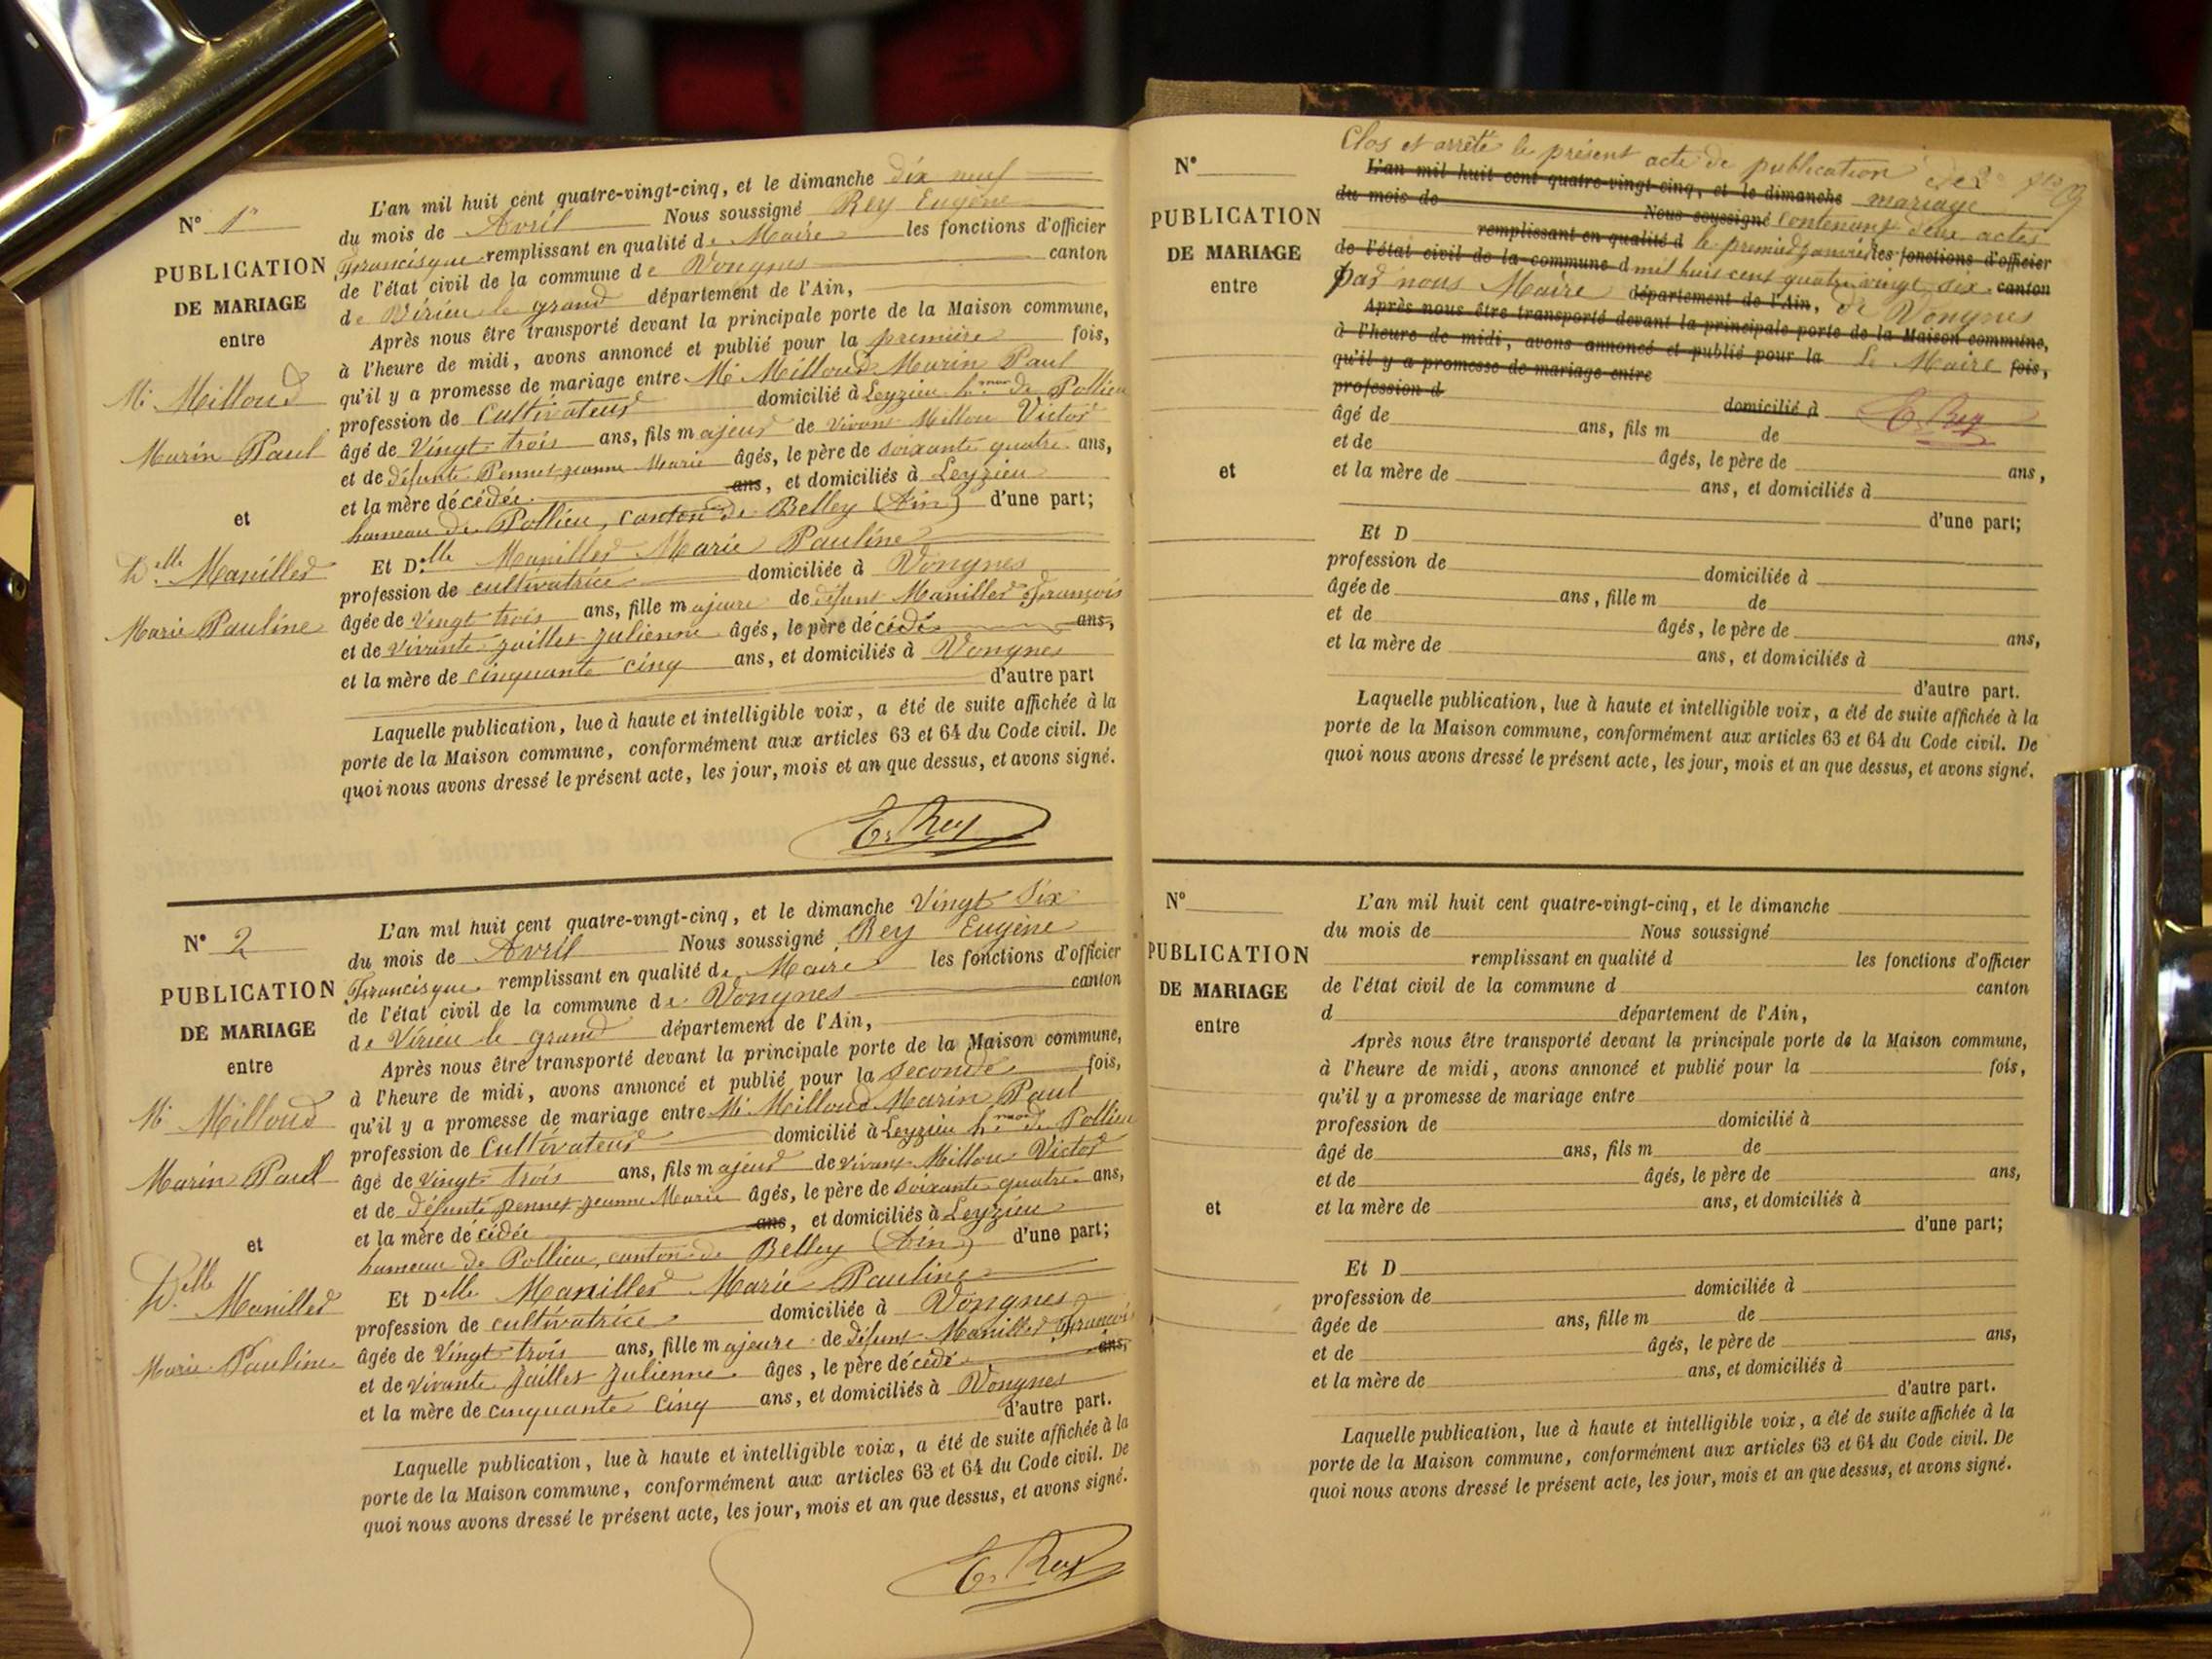 N° 1er
PUBLICATION
DE MARIAGE
entre
Mr Milloud
Marin Paul
et
Delle Maniller
Marie Pauline
L'an mil huit cent quatre-vingt-cinq, et le dimanche dix neuf
du mois de Avril Nous soussigné Rey Eugène
Francisque remplissant en qualité de Maire les fonctions d'officier
de l'état civil de la commune de Vongnes canton
de Virieu le grand département de l'Ain,
Après nous être transporté devant la principale porte de la Maison commune,
à l'heure de midi, avons annoncé et publié pour la première fois,
qu'il y a promesse de mariage entre Mr Milloud Marin Paul
profession de Cultivateur domicilié à Leyzieu h.meau de Pollieu
âgé de Vingt trois ans, fils majeur de vivant Millou Victor
et de défunte Pennet jeanne Marie âgés, le père de soixante quatre ans,
et la mère décédée ans, et domiciliés à Leyzieu
hameau de Pollieu, canton de Belley (Ain) d'une part;
Et Delle Maniller Marie Pauline
profession de cultivatrice domiciliée à Vongnes
âgée de Vingt trois ans, fille majeure de défunt Maniller François
et de vivante jaillet julienne âgés, le père décédé ans,
et la mère de cinquante cinq ans, et domiciliés à Vongnes
d'autre part
Laquelle publication, lue à haute et intelligible voix, a été de suite affichée à la
porte de la Maison commune, conformément aux articles 63 et 64 du Code civil. De
quoi nous avons dressé le présent acte, les jour, mois et an que dessus, et avons signé.
E. Rey
N° 2
PUBLICATION
DE MARIAGE
entre
Mr Milloud
Marin Paul
et
Delle Maniller
Marie Pauline
L'an mil huit cent quatre-vingt-cinq, et le dimanche Vingt Six
du mois de Avril Nous soussigné Rey Eugène
Francisque remplissant en qualité de Maire les fonctions d'officier
de l'état civil de la commune de Vongnes canton
de Virieu le grand département de l'Ain,
Après nous être transporté devant la principale porte de la Maison commune,
à l'heure de midi, avons annoncé et publié pour la seconde fois,
qu'il y a promesse de mariage entre Mr Milloud Marin Paul
profession de Cultivateur domicilié à Leyzieu h.meau de Pollieu
âgé de vingt trois ans, fils majeur de vivant Millou Victor
et de défunte pennet jeanne Marie âgés, le père de soixante quatre ans,
et la mère décédée ans, et domiciliés à Leyzieu
hameau de Pollieu, canton de Belley (Ain) d'une part;
Et Delle Maniller Marie Pauline
profession de cultivatrice domiciliée à Vongnes
âgée de Vingt trois ans, fille majeure de défunt Maniller François
et de vivante jaillet julienne âges, le père décédé ans,
et la mère de cinquante cinq ans, et domiciliés à Vongnes
d'autre part.
Laquelle publication, lue à haute et intelligible voix, a été de suite affichée à la
porte de la Maison commune, conformément aux articles 63 et 64 du Code civil. De
quoi nous avons dressé le présent acte, les jour, mois et an que dessus, et avons signé.
E. Rey
N°
PUBLICATION
DE MARIAGE
entre
et
Clos et arrêté le présent acte de publication de
L'an mil huit cent quatre-vingt-cinq, et le dimanche mariage
du mois de Nous soussigné contenant deux actes
remplissant en qualité d le premier janvier les fonctions d'officier
de l'état civil de la commune d mil huit cent quatre vingt six canton
par nous Maire département de l'Ain, de Vongnes
Après nous être transporté devant la principale porte de la Maison commune,
à l'heure de midi, avons annoncé et publié pour la Le Maire fois,
qu'il y a promesse de mariage entre
profession d domicilié à E. Rey
âgé de ans, fils m de
et de âgés, le père de ans,
et la mère de ans, et domiciliés à
d'une part;
Et D
profession de domiciliée à
âgée de ans, fille m de
et de âgés, le père de ans,
et la mère de ans, et domiciliés à
d'autre part.
Laquelle publication, lue à haute et intelligible voix, a été de suite affichée à la
porte de la Maison commune, conformément aux articles 63 et 64 du Code civil. De
quoi nous avons dressé le présent acte, les jour, mois et an que dessus, et avons signé.
N°
PUBLICATION
DE MARIAGE
entre
et
L'an mil huit cent quatre-vingt-cinq, et le dimanche
du mois de Nous soussigné
remplissant en qualité d les fonctions d'officier
de l'état civil de la commune d canton
d département de l'Ain,
Après nous être transporté devant la principale porte de la Maison commune,
à l'heure de midi, avons annoncé et publié pour la fois,
qu'il y a promesse de mariage entre
profession de domicilié à
âgé de ans, fils m de
et de âgés, le père de ans,
et la mère de ans, et domiciliés à
d'une part;
Et D
profession de domiciliée à
âgée de ans, fille m de
et de âgés, le père de ans,
et la mère de ans, et domiciliés à
d'autre part.
Laquelle publication, lue à haute et intelligible voix, a été de suite affichée à la
porte de la Maison commune, conformément aux articles 63 et 64 du Code civil. De
quoi nous avons dressé le présent acte, les jour, mois et an que dessus, et avons signé.